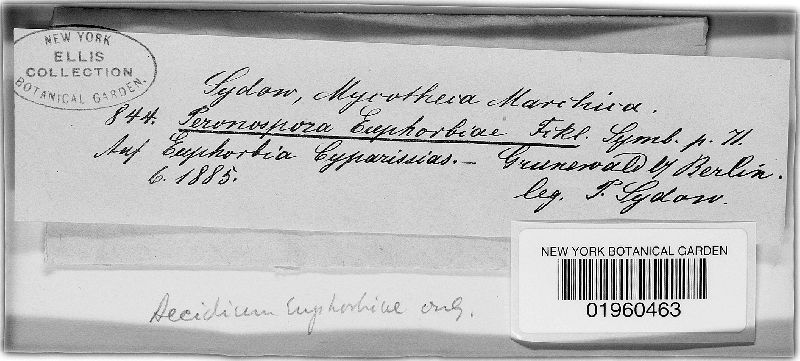 NEW YORK
ELLIS
COLLECTION
BOTANICAL GARDEN.
Sydow, Mycotheca Marchica.
844. Peronospora Euphorbiae Fckl. Symb. p. 71.
Auf Euphorbia Cyparissias. – Grunewald b/ Berlin.
6. 1885.
leg. P. Sydow.
NEW YORK BOTANICAL GARDEN
01960463
Aecidium Euphorbiae only.